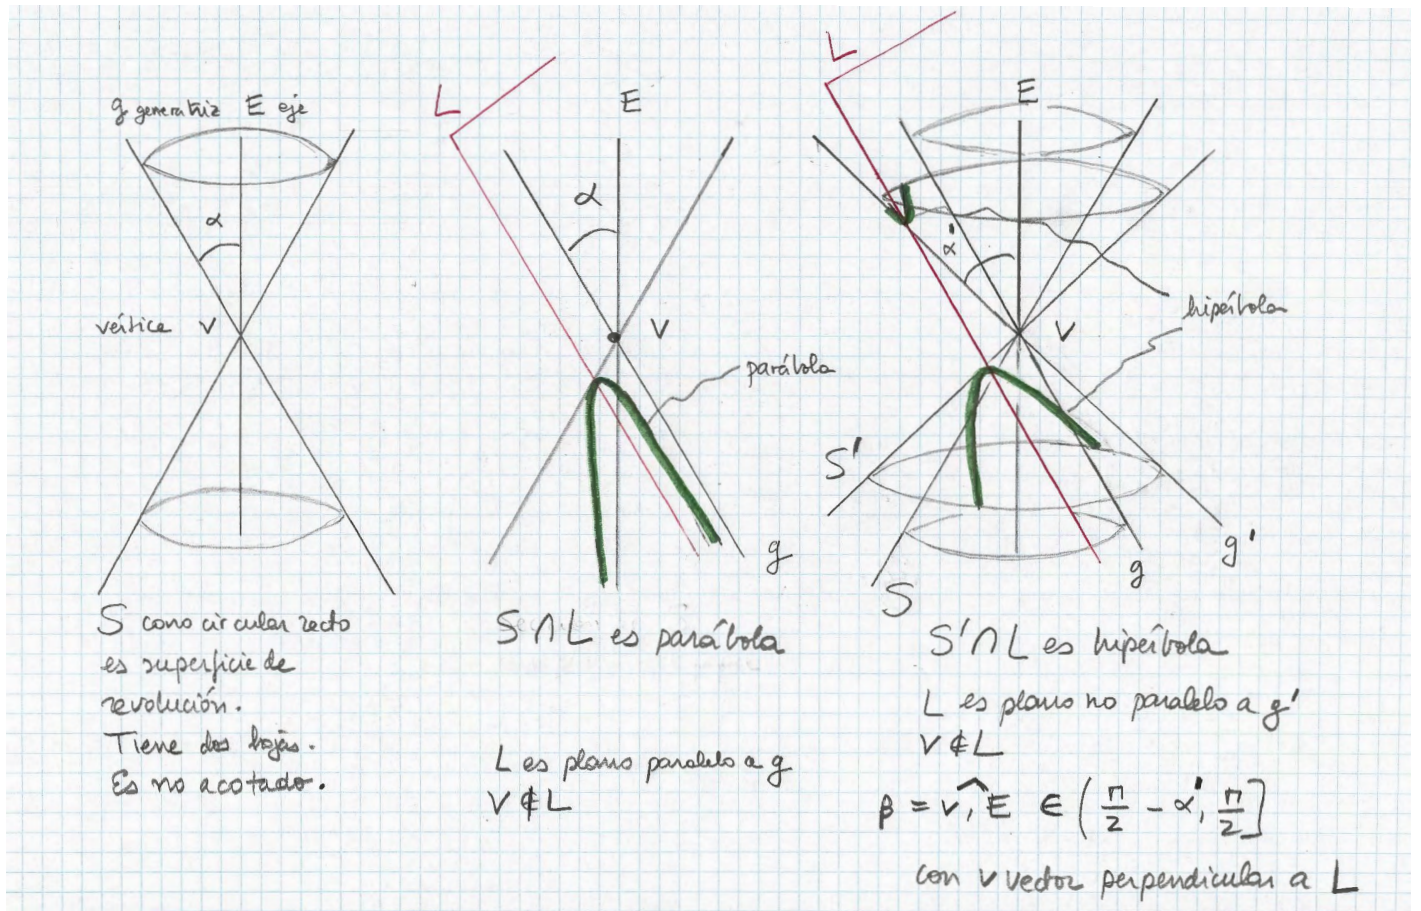 g generatriz E eje
α
vértice V
S cono circular recto
es superficie de
revolución.
Tiene dos hojas.
Es no acotado.
L
E
α
V
parábola
g
S ∩ L es parábola
L es plano paralelo a g
V ∉ L
L
E
α'
hipérbola
V
S'
g'
g
S
S' ∩ L es hipérbola
L es plano no paralelo a g'
V ∉ L
β = v,^E ∈ (π/2 - α', π/2]
con v vector perpendicular a L